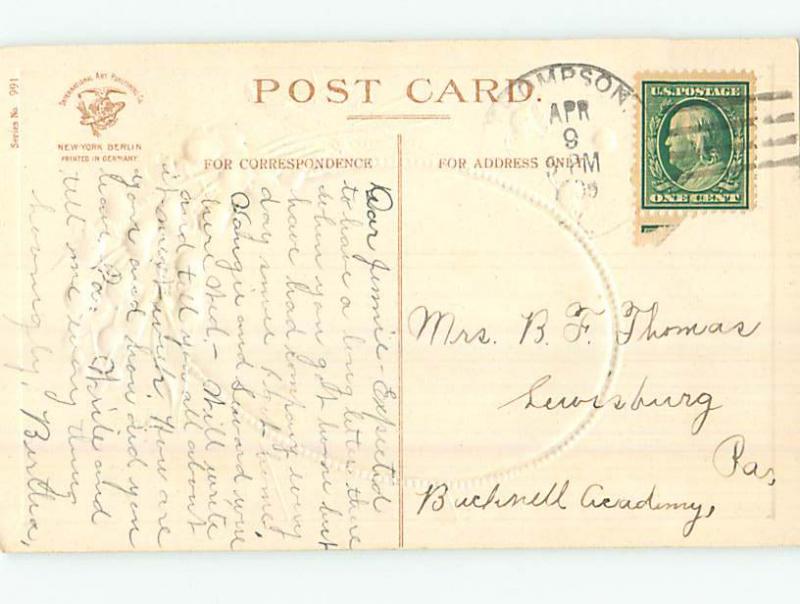 Series No. 991
INTERNATIONAL ART PUBLISHING Co.
NEW-YORK BERLIN
PRINTED IN GERMANY
POST CARD.
FOR CORRESPONDENCE
FOR ADDRESS ONLY
OMPSON,
APR
9
PM
U.S. POSTAGE
ONE CENT
Dear Jennie - Expected
to have a long letter there
when you got home but
have had company every
day since I got home.
Vangie and Seward were
here Wed. - Will write
and tell you all about
it next week. How are
you and how did you
leave Pa. Write and
tell me every thing
Lovingly, Bertha,
Mrs. B. F. Thomas
Lewisburg
Pa,
Bucknell Academy,